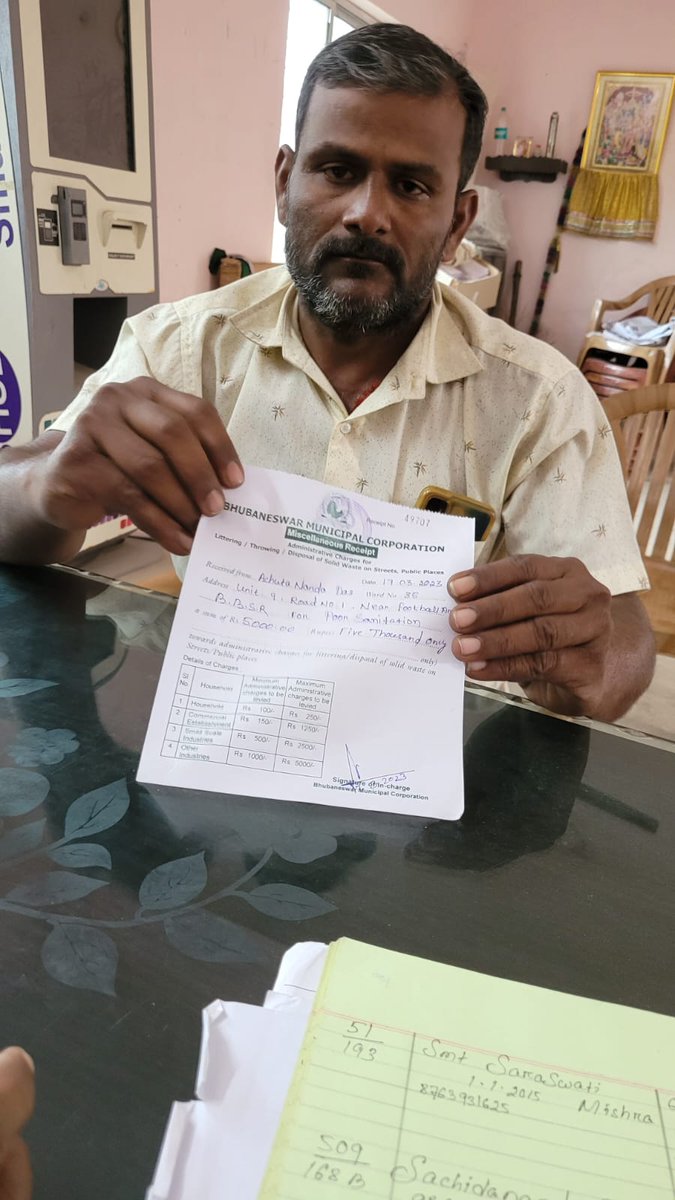 Receipt No. 49707
BHUBANESWAR MUNICIPAL CORPORATION
Miscellaneous Receipt
Administrative Charges for
Littering / Throwing / Disposal of Solid Waste on Streets, Public Places
Received from Achuta Nanda Das Date 17.03.2023
Address Unit 9, Road No 1, Near Football Ward No 36
B.B.S.R For Poor Sanitation
a sum of Rs 5000.00 (Rupees Five Thousand only
only)
towards administrative charges for littering/disposal of solid waste on
Streets/Public places
Details of Charges
Sl No Household Minimum Administrative charges to be levied Maximum Administrative charges to be levied
1 Household Rs 100/- Rs 250/-
2 Commercial Establishment Rs 150/- Rs 1250/-
3 Small Scale Industries Rs 500/- Rs 2500/-
4 Other Industries Rs 1000/- Rs 5000/-
Signature of In-charge
Bhubaneswar Municipal Corporation
51/193 Smt Saraswati
1.1.2015 Mishra
8763931625
509/168 B